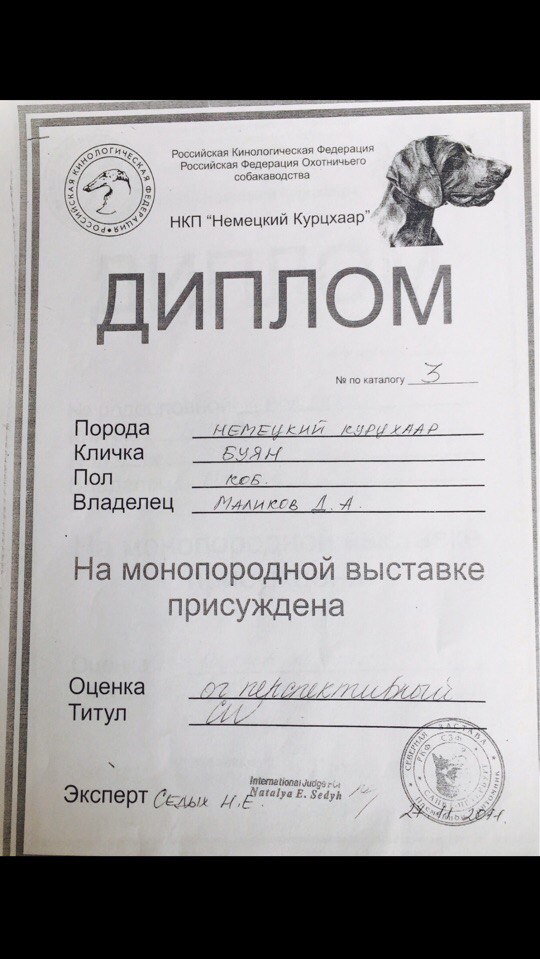 РОССИЙСКАЯ КИНОЛОГИЧЕСКАЯ ФЕДЕРАЦИЯ
Российская Кинологическая Федерация
Российская Федерация Охотничьего
собакаводства
НКП "Немецкий Курцхаар"
ДИПЛОМ
№ по каталогу 3
Порода НЕМЕЦКИЙ КУРЦХААР
Кличка БУЯН
Пол КОБ.
Владелец МАЛИКОВ Д. А.
На монопородной выставке
присуждена
Оценка оч перспективный
Титул
International Judge FCI
Natalya E. Sedyh
Эксперт СЕДЫХ Н.Е.
СЕВЕРНАЯ ЗАСТАВА
РКФ СЗФ